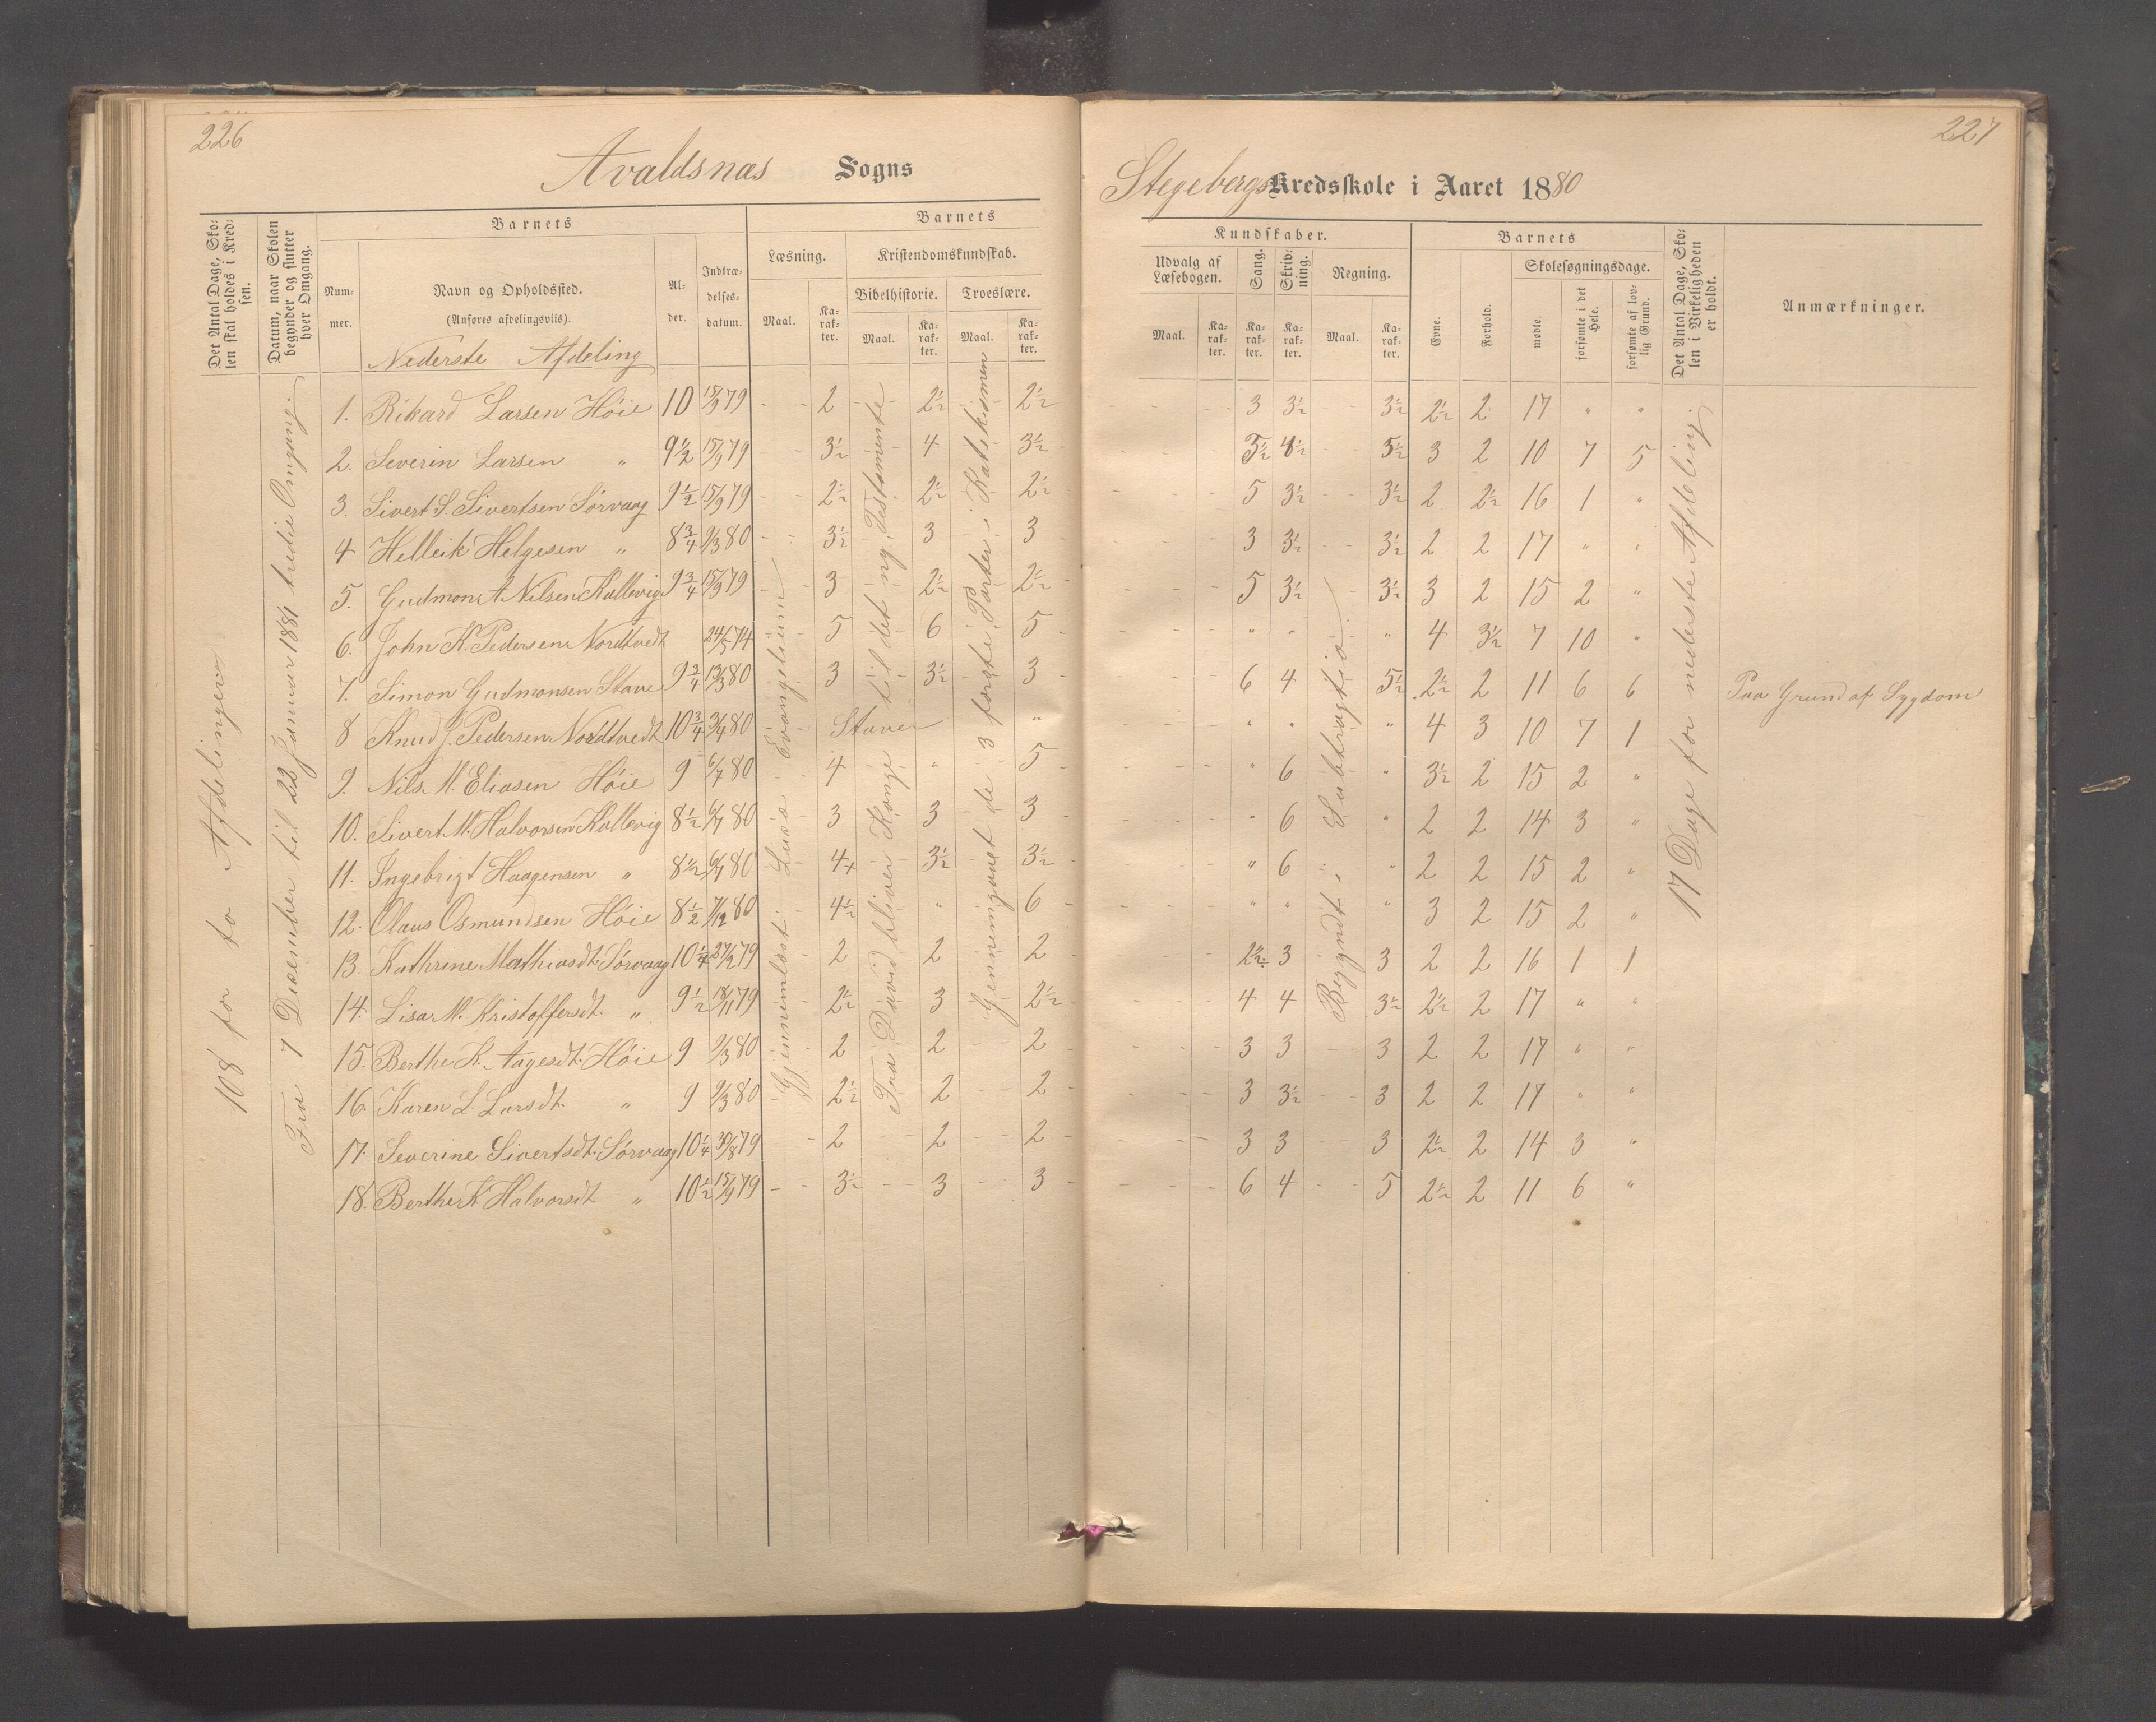 226
Avaldsnæs Sogns
Det Antal Dage, Skolen skal holdes i Kredsen.
Datum, naar Skolen begynder og slutter hver Omgang.
Barnets
Nummer.
Navn og Opholdssted.
(Anføres afdelingsviis).
Alder.
Indtrædelsesdatum.
Barnets
Læsning.
Kristendomskundskab.
Bibelhistorie.
Troeslære.
Maal.
Karakter.
Maal.
Karakter.
Maal.
Karakter.
Nederste Afdeling
108 for to Afdelinger
Fra 7 December til 22 Januar 1881 tredie Omgang.
Gjennemlæst Lucæ Evangelium
Fra David bliver Konge til det ny Testamente
Gjennemgaaet de 3 første Parter i Katekismen
1. Rikard Larsen Höie 10 15/9 79 2 2½ 2½
2. Severin Larsen " 9½ 15/9 79 3½ 4 3½
3. Sivert S. Sivertsen Sörvaag 9½ 15/9 79 2½ 2½ 2½
4 Helleik Helgesen " 8¾ 9/3 80 3½ 3 3
5. Gudmon A Nilsen Kallevig 9¾ 15/9 79 3 2½ 2½
6. John K. Pedersen Nordtvedt 24/5 74 5 6 5
7. Simon Gudmonsen Stave 9¾ 13/3 80 3 3½ 3
8 Knud J. Pedersen Nordtvedt 10¾ 3/4 80 Staver "
9. Nils M. Eliasen Höie 9 6/7 80 4 " 5
10. Sivert M. Halvorsen Kallevig 8½ 6/7 80 3 3 3
11. Ingebrigt Haagensen " 8½ 6/7 80 4+ 3½ 3½
12. Olaus Osmundsen Höie 8½ 7/12 80 4½ " 6
13. Kathrine Mathiasdt. Sörvaag 10¼ 27/2 79 2 2 2
14. Lisa M. Kristoffersdt. " 9½ 18/11 79 2½ 3 2½
15. Berthe K. Aagesdt. Höie 9 9/3 80 2 2 2
16. Karen L. Larsdt. " 9 9/3 80 2½ 2 2
17. Severine Sivertsdt. Sörvaag 10¼ 30/8 79 2 2 2
18. Berthe K Halvorsdt " 10½ 15/9 79 3½ 3 3
227
Stegebergs Kredsskole i Aaret 1880
Kundskaber.
Udvalg af Læsebogen.
Sang.
Skrivning.
Regning.
Maal.
Karakter.
Karakter.
Karakter.
Maal.
Karakter.
Barnets
Evne.
Forhold.
Skolesøgningsdage.
mødte.
forsømte i det Hele.
forsømte af lovlig Grund.
Det Antal Dage, Skolen i Virkeligheden er holdt.
Anmærkninger.
Begyndt i Subtragtio.
17 Dage for nederste Afdeling.
3 3½ 3½ 2½ 2 17 " "
5½ 4½ 5½ 3 2 10 7 5
5 3½ 3½ 2 2½ 16 1 "
3 3½ 3½ 2 2 17 " "
5 3½ 3½ 3 2 15 2 "
" " " 4 3½ 7 10 "
6 4 5½ 2½ 2 11 6 6 Paa Grund af Sygdom
" " " 4 3 10 7 1
" 6 " 3½ 2 15 2 "
" 6 " 2 2 14 3 "
" 6 " 2 2 15 2 "
" " " 3 2 15 2 "
2½ 3 3 2 2 16 1 1
4 4 3½ 2½ 2 17 " "
3 3 3 2 2 17 " "
3 3½ 3 2 2 17 " "
3 3 3 2½ 2 14 3 "
6 4 5 2½ 2 11 6 "